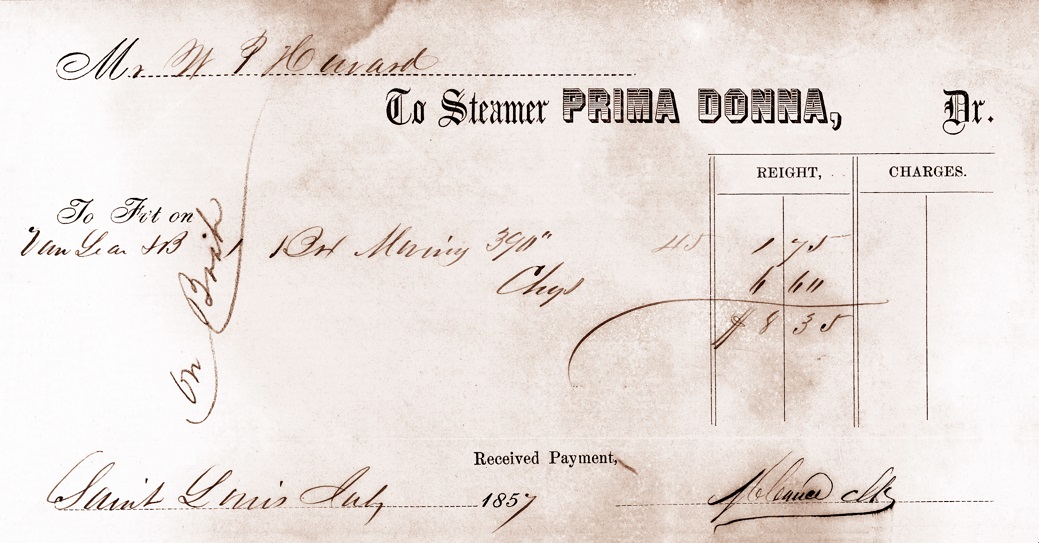 Mr. W P Havard
To Steamer PRIMA DONNA, Dr.
REIGHT, CHARGES.
To Frt on
Van Lear & B 1 Box 390" 45 1 75
Chgs 6 60
$ 8 35
on
Received Payment,
Saint Louis July 1857 Clk